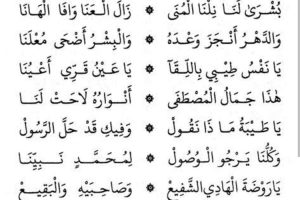 بُشْرَىٰ لَنَا نِلْنَا الْمُنَى ۞ زَالَ الْعَنَا وَافَا الْهَانَا
وَالدَّهْرُ أَنْجَزَ وَعْدَهُ ۞ وَالْبِشْرُ أَضْحَى مُعْلَنَا
يَا نَفْسُ طِيْبِي بِاللِّقَا ۞ يَا عَيْنُ قَرِّي أَعْيُنَا
هٰذَا جَمَالُ الْمُصْطَفَى ۞ أَنْوَارُهُ لَاحَتْ لَنَا
يَا طَيْبَةُ مَا ذَا نَقُولُ ۞ وَفِيكِ قَدْ حَلَّ الرَّسُولْ
وَكُلُّنَا يَرْجُو الْوُصُولْ ۞ لِمُحَمَّدٍ نَبِيِّنَا
يَا رَوْضَةَ الْهَادِي الشَّفِيعْ ۞ وَصَاحِبَيْهِ وَالْبَقِيعْ